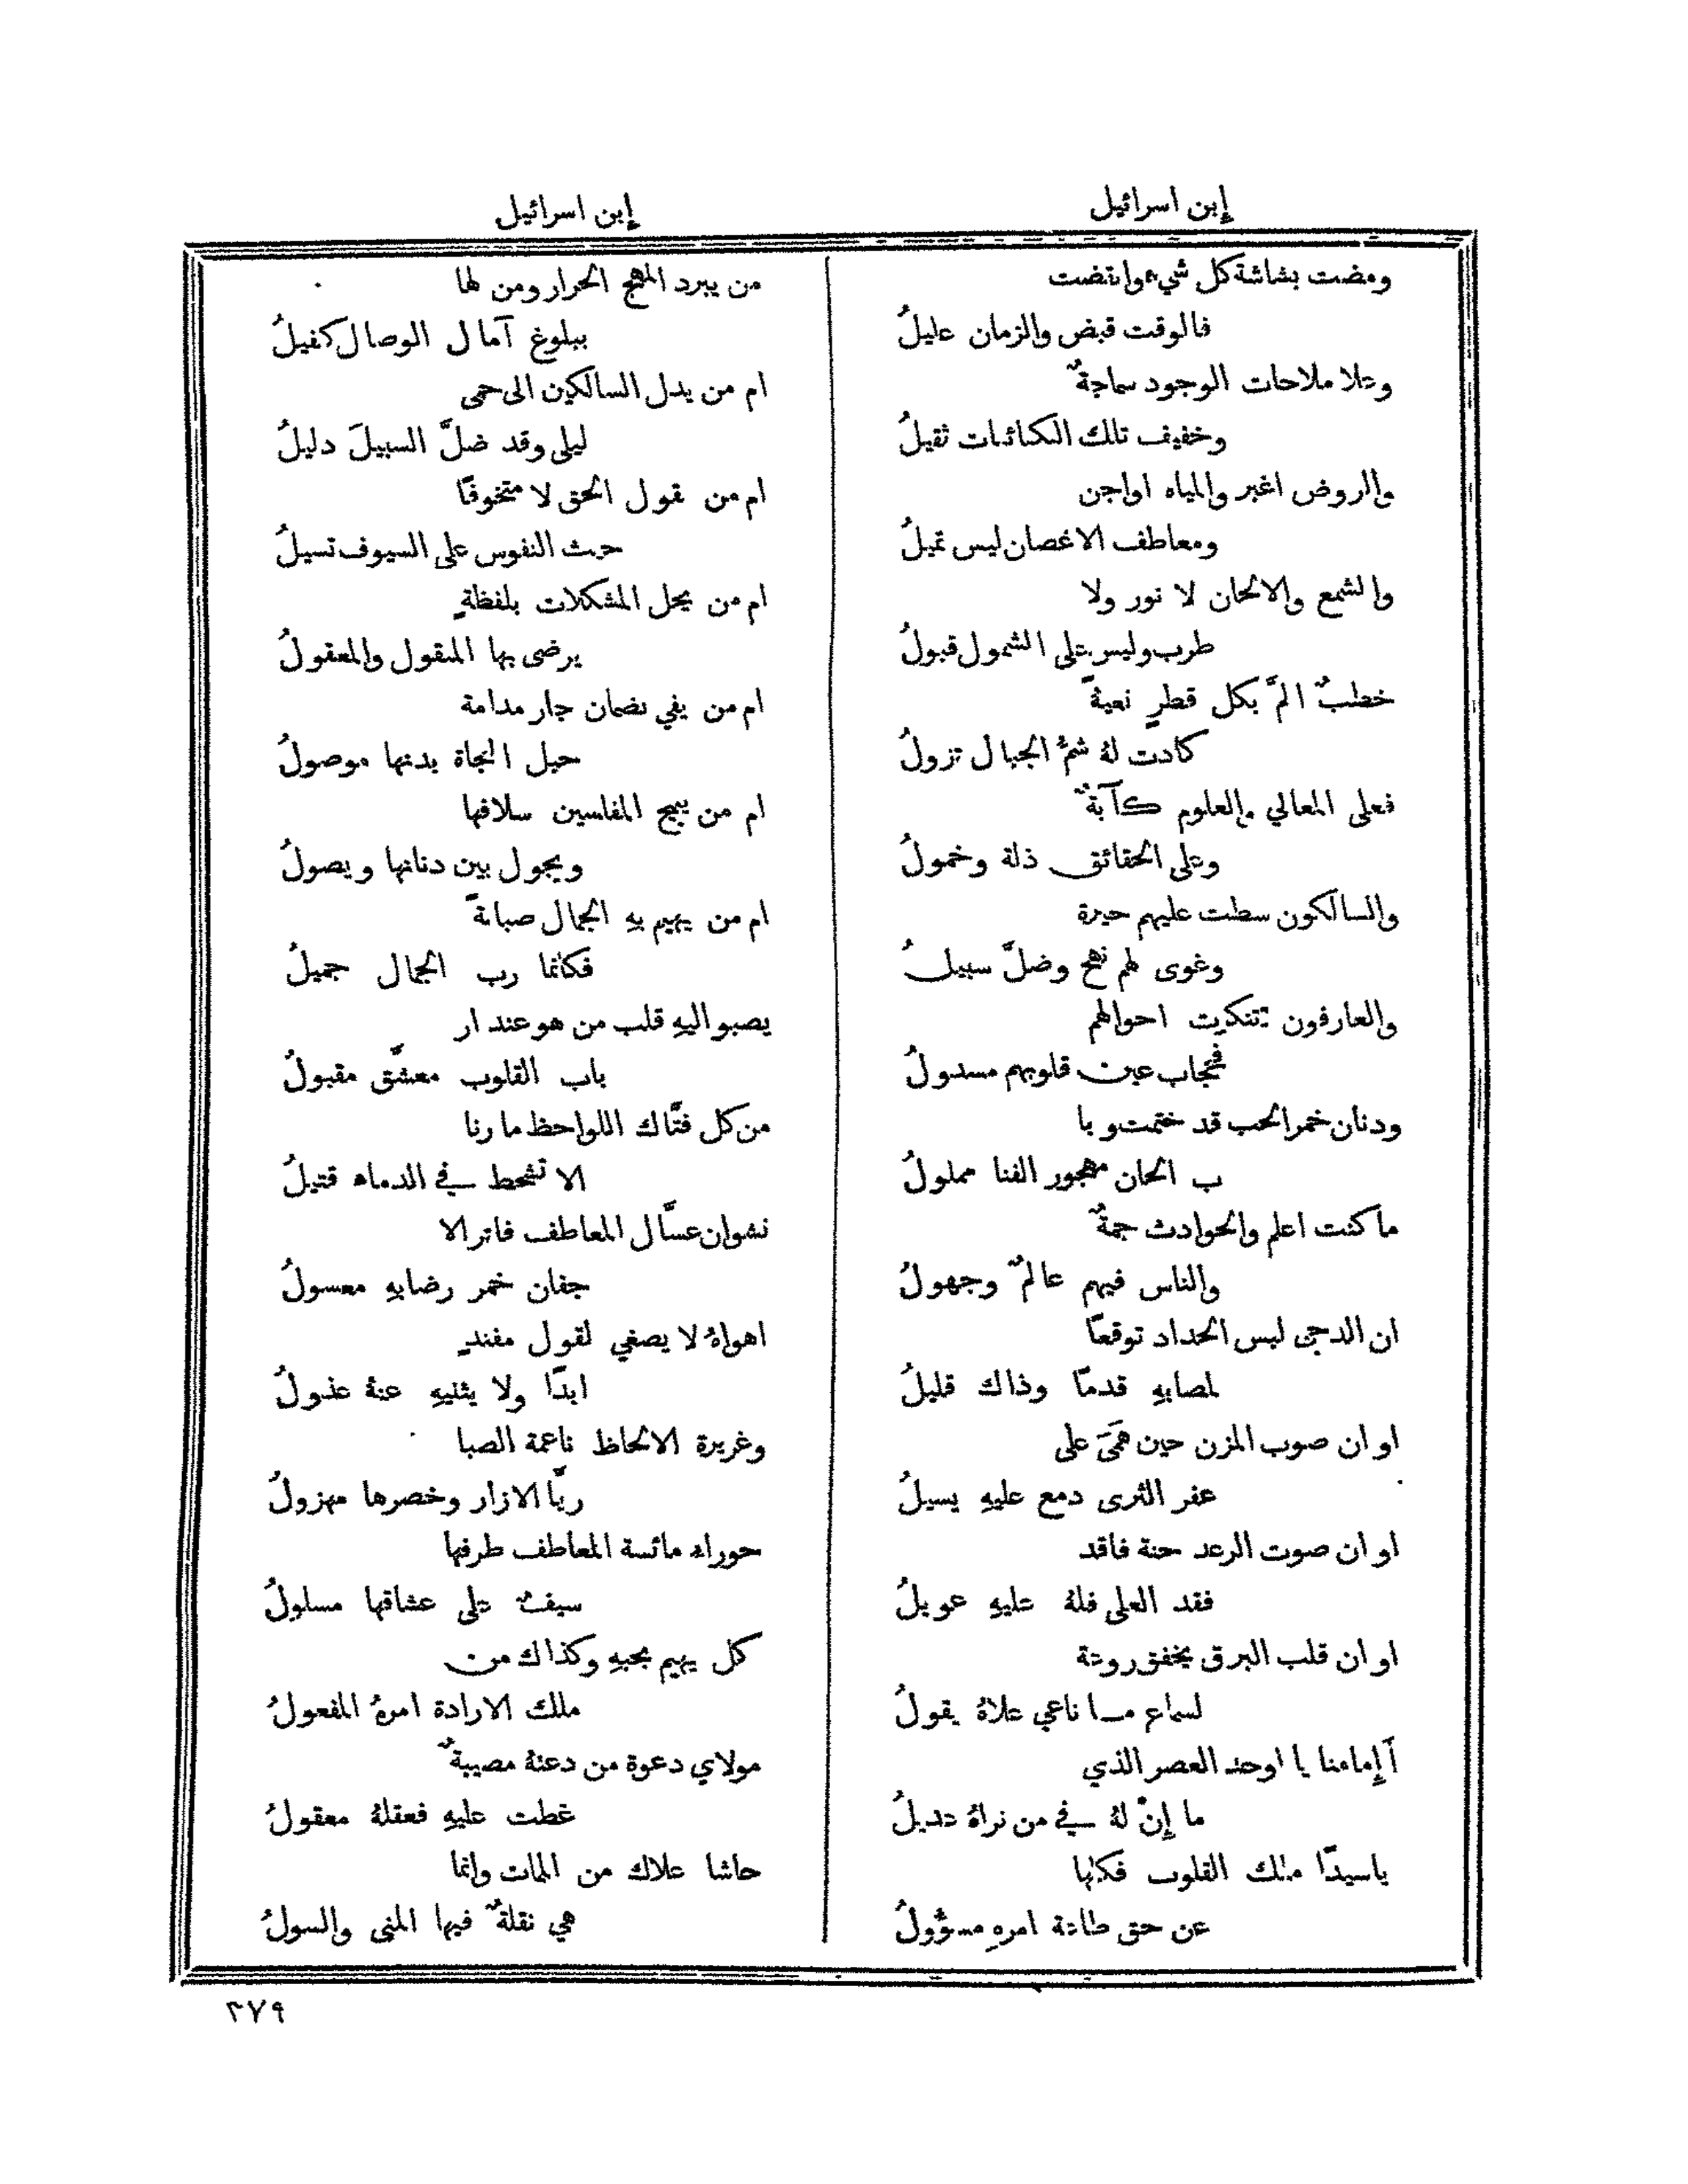 إبن اسرائيل
إبن اسرائيل
ومضت بشاشة كل شيء وانقضت
فالوقت قبض والزمان عليلُ
وعلا ملاحات الوجود سماجةٌ
وخفيف تلك الكائنات ثقيلُ
والروض اغبر والمياه اواجن
ومعاطف الاغصان ليس تميلُ
والشمع والالحان لا نور ولا
طرب وليس على الشمول قبولُ
خطبٌ المَّ بكل قطرٍ نعيهُ
كادت لهُ شمُّ الجبال تزولُ
فعلى المعالي والعلوم كآبةٌ
وعلى الحقائق ذلة وخمولُ
والسالكون سطت عليهم حيرة
وغوى لهم نهج وضلَّ سبيلُ
والعارفون تنكرت احوالهم
فحجاب عين قلوبهم مسدولُ
ودنان خمر الحب قد ختمت وبا
ب الحان مهجور الفنا مملولُ
ما كنت اعلم والحوادث جمةٌ
والناس فيهم عالمٌ وجهولُ
ان الدجى لبس الحداد توقعًا
لمصابهِ قدمًا وذاك قليلُ
او ان صوب المزن حين همَى على
عفر الثرى دمع عليهِ يسيلُ
او ان صوت الرعد حنة فاقد
فقد العلى فلهُ عليهِ عويلُ
او ان قلب البرق يخفق روعة
لسماع ما ناعي علاهُ يقولُ
آإمامنا يا اوحد العصر الذي
ما إنْ لهُ في من نراهُ عديلُ
ياسيدًا ملك القلوب فكلها
عن حق طاعة امرهِ مسؤولُ
من يبرد المهج الحرار ومن لها
ببلوغ آمال الوصال كفيلُ
ام من يدل السالكين الى حمى
ليلى وقد ضلَّ السبيلَ دليلُ
ام من يقول الحق لا متخوفًا
حيث النفوس على السيوف تسيلُ
ام من يحل المشكلات بلفظةٍ
يرضى بها المنقول والمعقولُ
ام من يفي بضمان جار مدامة
حبل النجاة بدنها موصولُ
ام من يبيح المفلسين سلافها
ويجول بين دنانها ويصولُ
ام من يهيم بهِ الجمال صبابةً
فكانما رب الجمال جميلُ
يصبو اليهِ قلب من هو عند ار
باب القلوب معشَّق مقبولُ
من كل فتَّاك اللواحظ ما رنا
الا تشحط في الدماء قتيلُ
نشوان عسَّال المعاطف فاتر الا
جفان خمر رضابهِ معسولُ
اهواهُ لا يصغي لقول مفندٍ
ابدًا ولا يثنيهِ عنهُ عذولُ
وغريرة الالحاظ ناعمة الصبا
ريَّا الازار وخصرها مهزولُ
حوراء مائسة المعاطف طرفها
سيفٌ على عشاقها مسلولُ
كل يهيم بحبهِ وكذاك من
ملك الارادة امرهُ المفعولُ
مولاي دعوة من دعتهُ مصيبةٌ
غطت عليهِ فعقلهُ معقولُ
حاشا علاك من الممات وانما
هي نقلةٌ فيها المنى والسولُ
٣٧٩